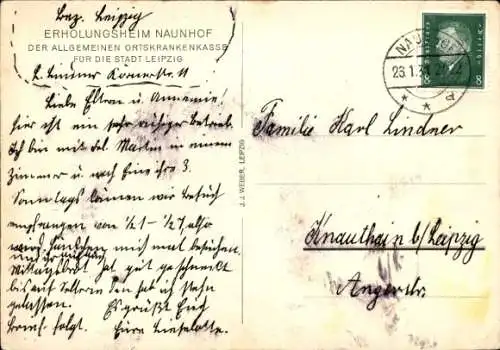 Bez. Leipzig
ERHOLUNGSHEIM NAUNHOF
DER ALLGEMEINEN ORTSKRANKENKASSE
FÜR DIE STADT LEIPZIG
L. Lindner Körnerstr. 11
Liebe Eltern u. Annemie!
hier ist ein sehr ruhiger Betrieb.
Ich bin mit in einem
Zimmer u. noch Eine ihre 3.
Sonntags können wir Besuch
empfangen von ½1 - ½7, also
mich mal besuchen.
Mittagsbrot hat gut geschmeckt
bis auf den hab ich stehn
gelassen. Es grüßt Euch
Brief folgt. Eure Lieselotte.
J. J. WEBER, LEIPZIG
NAUNHOF
23.1.3
Deutsches Reich
8 8
Familie Karl Lindner
Knauthain b/Leipzig
Angerstr.